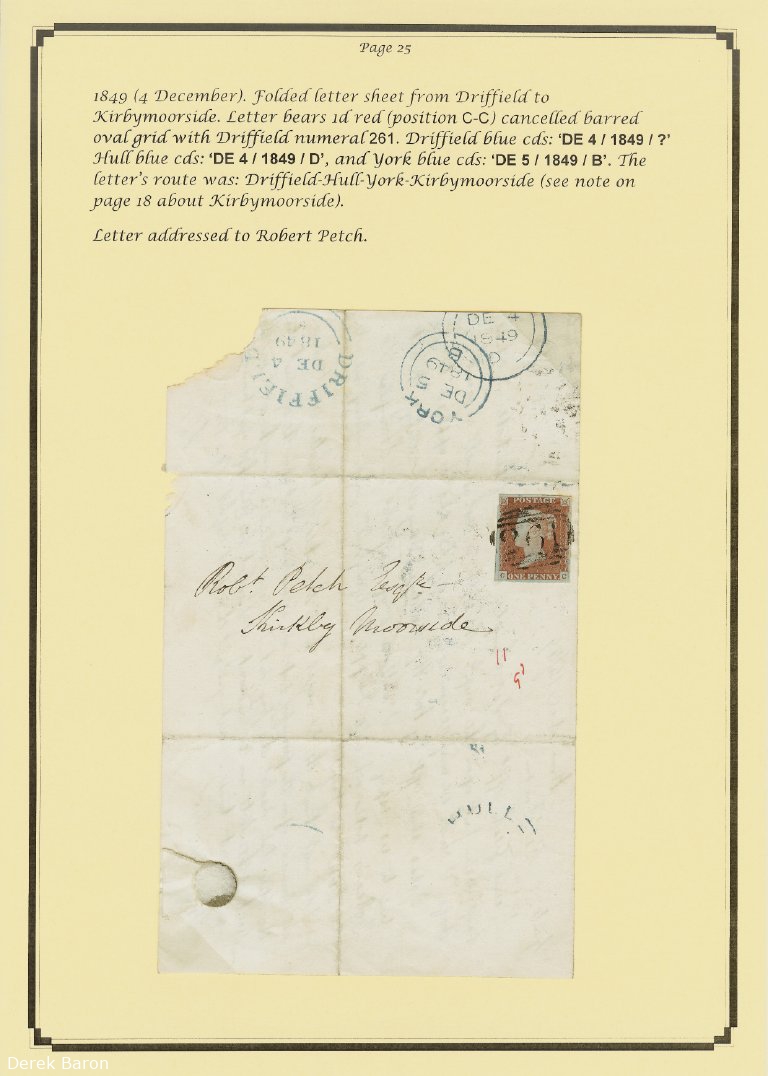 Page 25
1849 (4 December). Folded letter sheet from Driffield to
Kirbymoorside. Letter bears 1d red (position C-C) cancelled barred
oval grid with Driffield numeral 261. Driffield blue cds: ‘DE 4 / 1849 / ?’
Hull blue cds: ‘DE 4 / 1849 / D’, and York blue cds: ‘DE 5 / 1849 / B’. The
letter’s route was: Driffield-Hull-York-Kirbymoorside (see note on
page 18 about Kirbymoorside).
Letter addressed to Robert Petch.
DRIFFIELD
DE 4
1849
DE 4
1849
D
YORK
DE 5
1849
B
POSTAGE
261
C ONE PENNY C
Robt. Petch Esqre
Kirkby Moorside
HULL
Derek Baron